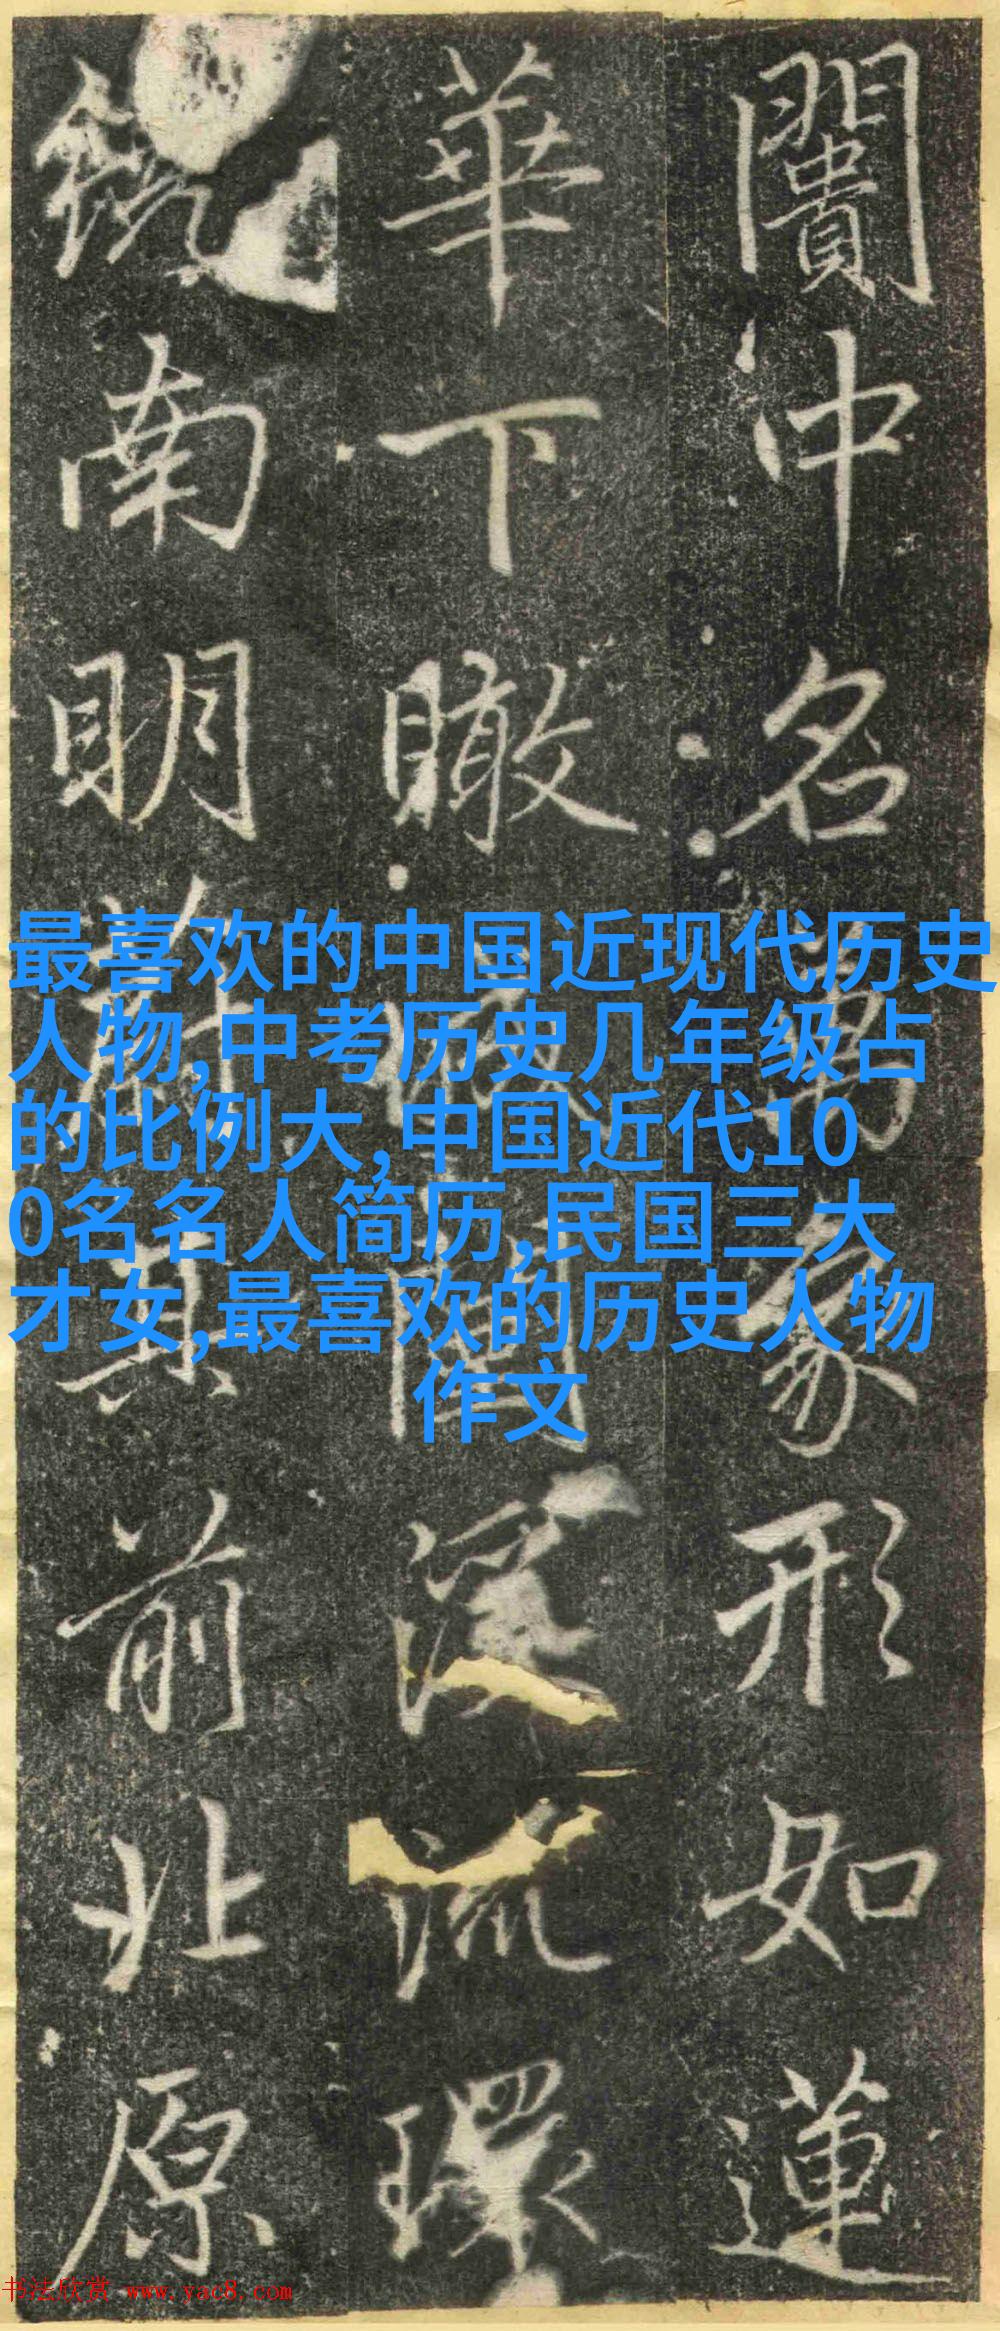 闠中名萬象形如蓮
華下瞰閣深流環
鏡南明其前北原
最喜欢的中国近现代历史
人物,中考历史几年级占
的比例大,中国近代10
0名名人简历,民国三大
才女,最喜欢的历史人物
作文
书法欣赏 www.yac8.com